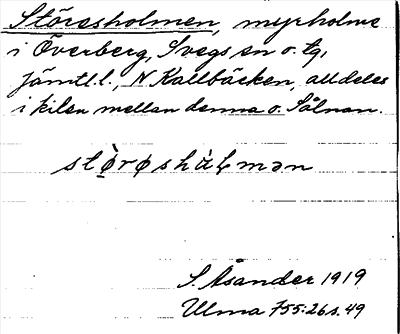 Störesholmen, myrholme
i Överberg, Svegs sn o. tg,
Jämtl.l., N Kallbäcken, alldeles
i kilen mellan denna o. Sålnan.
stø̀røshàɫmən
S. Åsander 1919
Ulma 755:26 s. 49